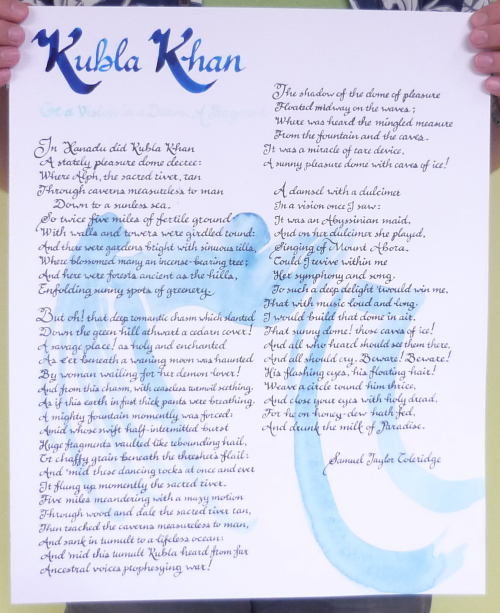 Kubla Khan
Or a Vision in a Dream. A Fragment
In Xanadu did Kubla Khan
A stately pleasure dome decree:
Where Alph, the sacred river, ran
Through caverns measureless to man
Down to a sunless sea.
So twice five miles of fertile ground
With walls and towers were girdled round:
And there were gardens bright with sinuous rills,
Where blossomed many an incense-bearing tree;
And here were forests ancient as the hills,
Enfolding sunny spots of greenery.
But oh! that deep romantic chasm which slanted
Down the green hill athwart a cedarn cover!
A savage place! as holy and enchanted
As e'er beneath a waning moon was haunted
By woman wailing for her demon lover!
And from this chasm, with ceaseless turmoil seething,
As if this earth in fast thick pants were breathing,
A mighty fountain momently was forced:
Amid whose swift half-intermitted burst
Huge fragments vaulted like rebounding hail,
Or chaffy grain beneath the thresher's flail:
And 'mid these dancing rocks at once and ever
It flung up momently the sacred river.
Five miles meandering with a mazy motion
Through wood and dale the sacred river ran,
Then reached the caverns measureless to man,
And sank in tumult to a lifeless ocean:
And mid this tumult Kubla heard from far
Ancestral voices prophesying war!
The shadow of the dome of pleasure
Floated midway on the waves;
Where was heard the mingled measure
From the fountain and the caves.
It was a miracle of rare device,
A sunny pleasure dome with caves of ice!
A damsel with a dulcimer
In a vision once I saw:
It was an Abyssinian maid,
And on her dulcimer she played,
Singing of Mount Abora.
Could I revive within me
Her symphony and song,
To such a deep delight 'twould win me,
That with music loud and long
I would build that dome in air,
That sunny dome! those caves of ice!
And all who heard should see them there,
And all should cry, Beware! Beware!
His flashing eyes, his floating hair!
Weave a circle round him thrice,
And close your eyes with holy dread,
For he on honey-dew hath fed,
And drunk the milk of Paradise.
Samuel Taylor Coleridge